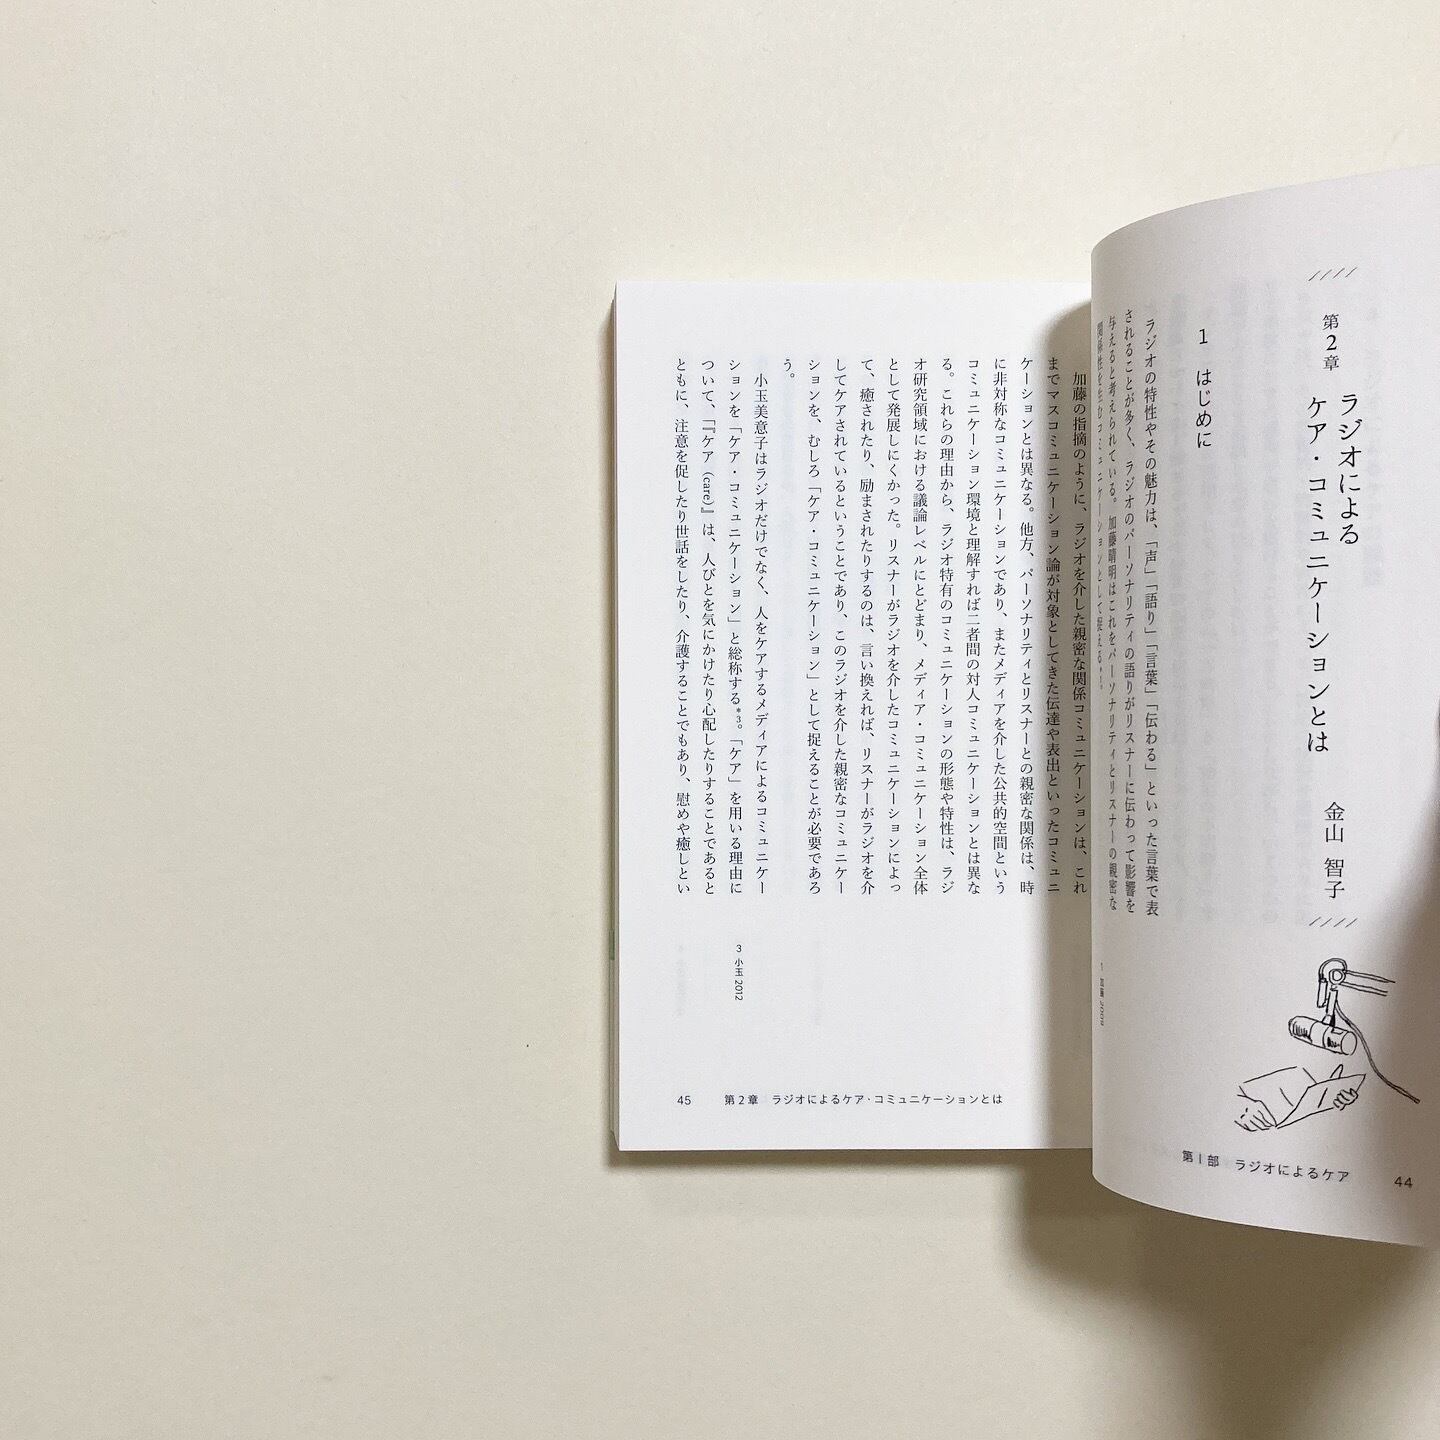 第2章
ラジオによる
ケア・コミュニケーションとは
金山 智子
1 はじめに
ラジオの特性やその魅力は、「声」「語り」「言葉」「伝わる」といった言葉で表
されることが多く、ラジオのパーソナリティの語りがリスナーに伝わって影響を
与えると考えられている。加藤晴明はこれをパーソナリティとリスナーの親密な
関係性を生むコミュニケーションとして捉える*1。
1 加藤 2009
第Ⅰ部 ラジオによるケア
44
加藤の指摘のように、ラジオを介した親密な関係コミュニケーションは、これ
までマスコミュニケーション論が対象としてきた伝達や表出といったコミュニ
ケーションとは異なる。他方、パーソナリティとリスナーとの親密な関係は、時
に非対称なコミュニケーションであり、またメディアを介した公共的空間という
コミュニケーション環境と理解すれば二者間の対人コミュニケーションとは異な
る。これらの理由から、ラジオ特有のコミュニケーションの形態や特性は、ラジ
オ研究領域における議論レベルにとどまり、メディア・コミュニケーション全体
として発展しにくかった。リスナーがラジオを介したコミュニケーションによっ
て、癒されたり、励まされたりするのは、言い換えれば、リスナーがラジオを介
してケアされているということであり、このラジオを介した親密なコミュニケー
ションを、むしろ「ケア・コミュニケーション」として捉えることが必要であろ
う。
小玉美意子はラジオだけでなく、人をケアするメディアによるコミュニケー
ションを「ケア・コミュニケーション」と総称する*3。「ケア」を用いる理由に
ついて、「『ケア（care）』は、人びとを気にかけたり心配したりすることであると
ともに、注意を促したり世話をしたり、介護することでもあり、慰めや癒しとい
3 小玉 2012
45 第2章 ラジオによるケア・コミュニケーションとは